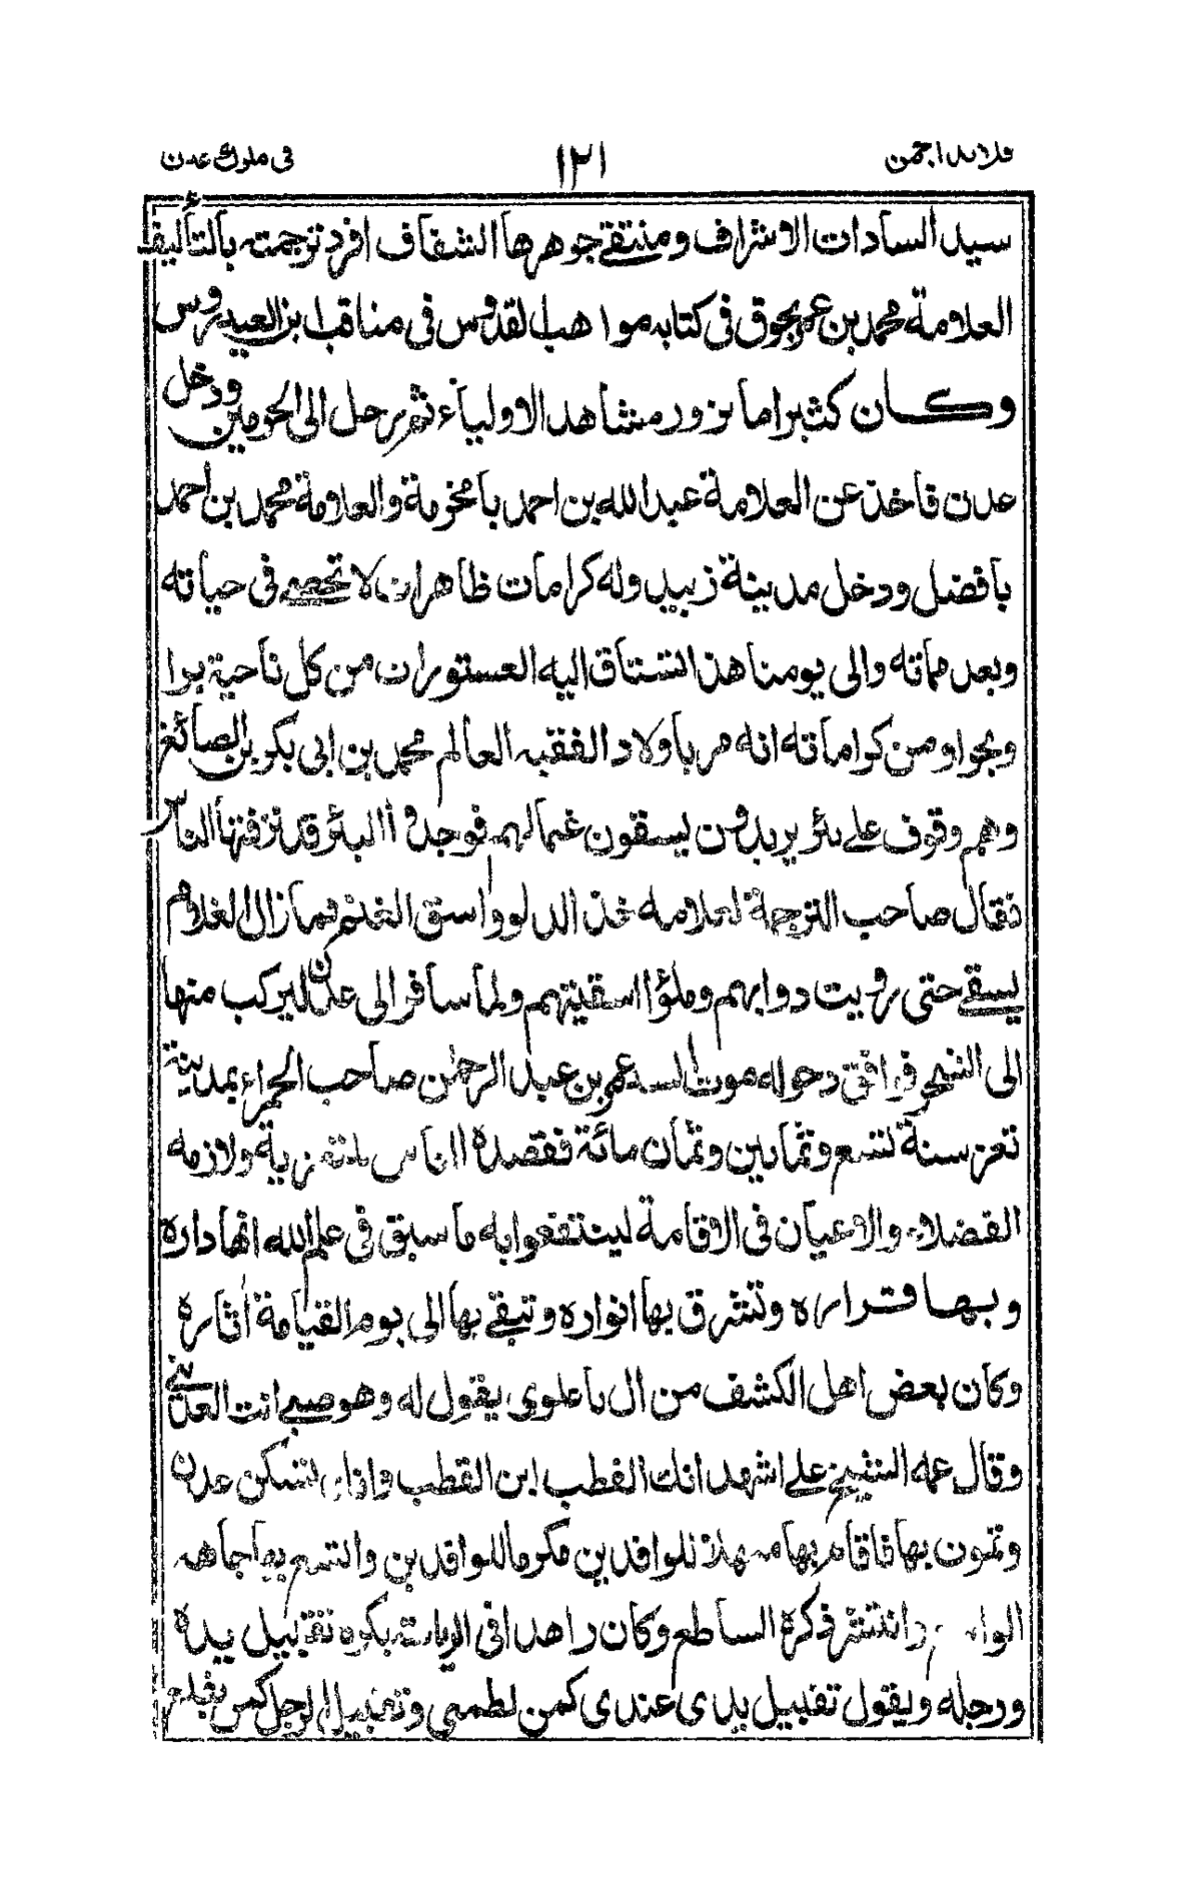 قلائد الجمن ١٢١ في ملوك عدن
سيد السادات الاشراف ومنتقى جوهرها الشفاف افرد ترجمته بالتأليف
العلامة محمد بن عمر بحوق فى كتابه مواهب القدوس فى مناقب ابن العيدروس
وكان كثيرا ما يزور مشاهد الاولياء ثم رحل الى الحرمين ودخل
عدن فاخذ عن العلامة عبد الله بن احمد بامخرمة والعلامة محمد بن احمد
بافضل ودخل مدينة زبيد وله كرامات ظاهرات لا تحصى فى حياته
وبعد مماته والى يومنا هذا تشتاق اليه المستورات من كل ناحية برا
وبحرا ومن كراماته انه مر باولاد الفقيه العالم محمد بن ابى بكر بن الصائغ
وهم وقوف على بئر يريدون يسقون غنما لهم فوجدوا البئر قد نزفتها الناس
فقال صاحب الترجمة لغلامه خذ الدلو واسق الغنم فما زال الغلام
يسقى حتى رويت دوابهم وملؤا اسقيتهم ولما سافر الى عدن ليركب منها
الى الشحر وافق دخوله موت السيد عمر بن عبد الرحمن صاحب الحمراء بمدينة
تعز سنة تسع وثمانين وثمان مائة فقصده الناس للتعزية ولازمه
الفضلاء والاعيان فى الاقامة لينتفعوا به ما سبق فى علم الله انها داره
وبها قراره وتشرق بها انواره وتبقى بها الى يوم القيامة اثاره
وكان بعض اهل الكشف من ال باعلوى يقول له وهو صبى انت العدنى
وقال عمه الشيخ على اشهد انك القطب ابن القطب واذا تسكن عدن
وتموت بها فاقام بها منهلا للوافدين مكرما للوافدين واتسع بها جاهه
الواسع وانتشر ذكره الساطع وكان زاهدا فى الرياسة يكره تقبيل يده
ورجله ويقول تقبيل يدى عندى كمن لطمنى وتقبيل الرجل كمن يقلع